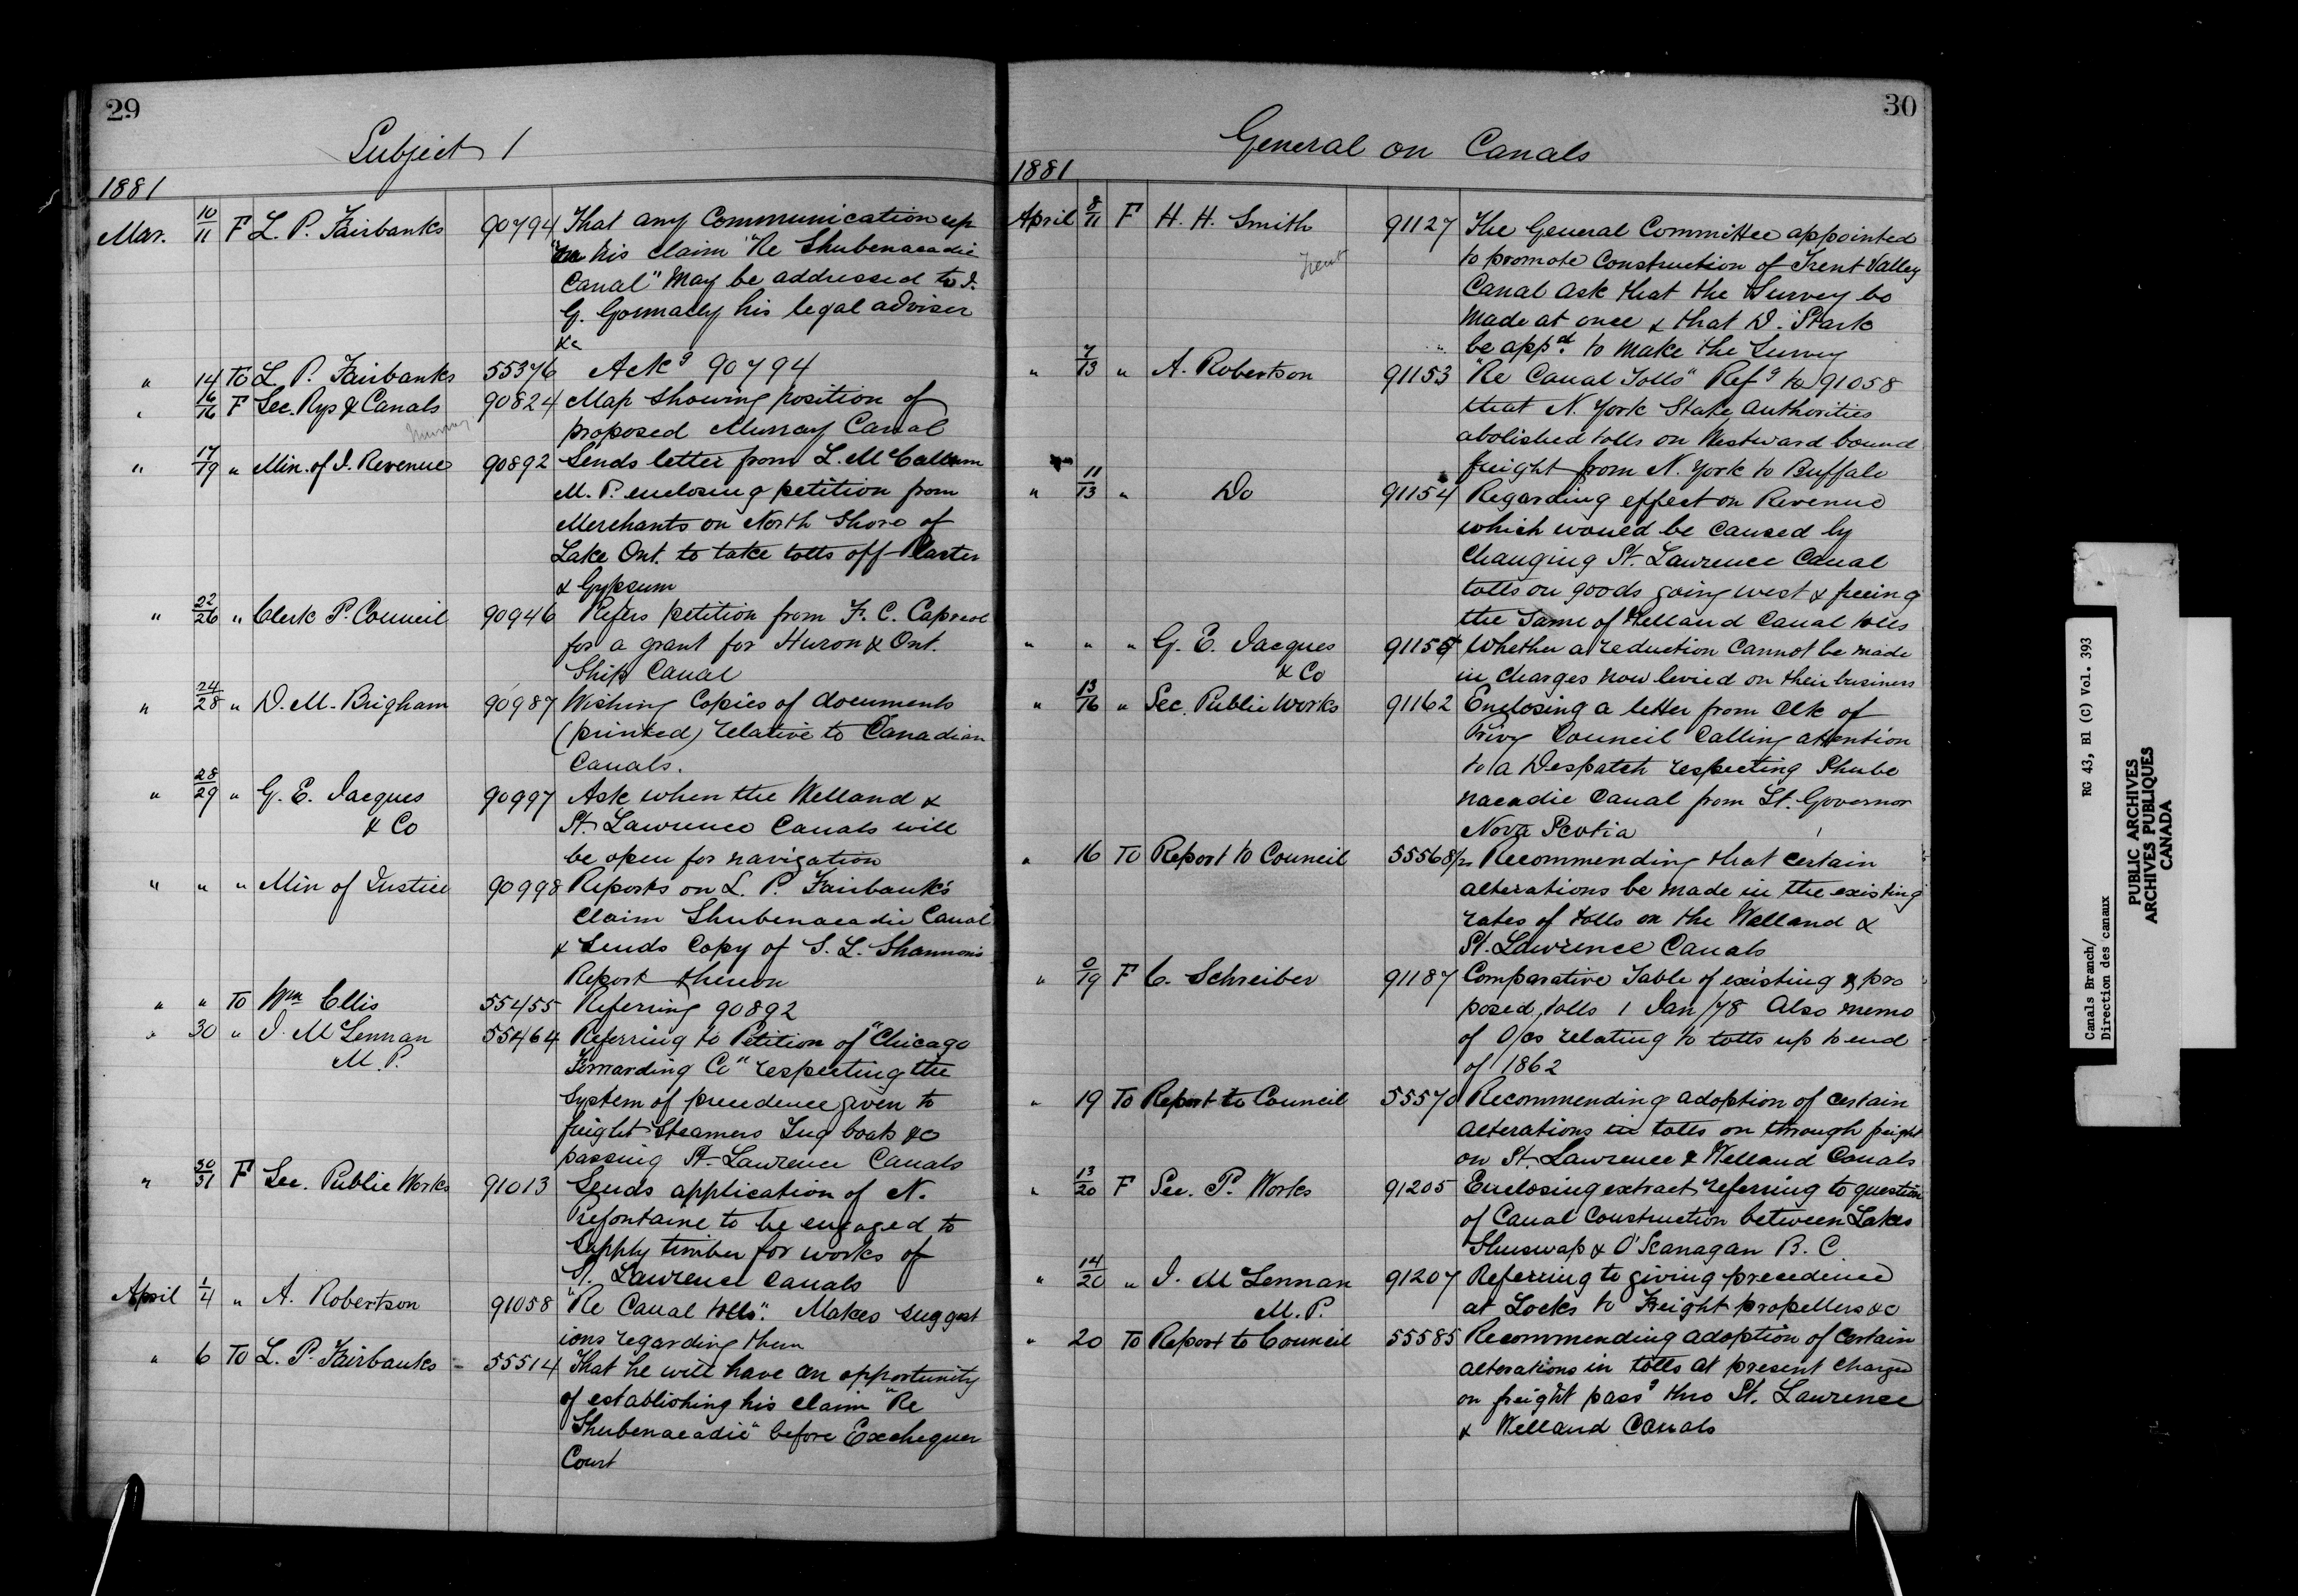 29
Subject 1
1881
Mar. 10/11 F L. P. Fairbanks 90794 That any Communication up
on his claim "Re Shubenacadie
Canal" May be addressed to I.
G. Gormally his legal adviser
&c
" 14 To L. P. Fairbanks 55376 Ackg 90794
" 16/16 F Sec. Rys & Canals 90824 Map showing position of
Murray
proposed Murray Canal
" 17/19 " Min. of I. Revenue 90892 Sends letter from L. McCallum
M. P. enclosing petition from
Merchants on North Shore of
Lake Ont. to take tolls off Plaster
& Gypsum
" 22/26 " Clerk P. Council 90946 Refers petition from F. C. Capreol
for a grant for Huron & Ont.
Ship Canal
" 24/28 " D. M. Brigham 90987 Wishing Copies of documents
(printed) relative to Canadian
Canals.
" 28/29 " G. E. Jacques 90997 Ask when the Welland &
& Co St. Lawrence Canals will
be open for navigation
" " " Min of Justice 90998 Reports on L. P. Fairbank's
Claim Shubenacadie Canal
& Sends Copy of S. L. Shannon's
Report thereon
" " To Wm Ellis 55455 Referring 90892
" 30 " J. McLennan 55464 Referring to Petition of "Chicago
M. P. Forwarding Co" respecting the
System of precedence given to
freight Steamers Tug boats &c
passing St. Lawrence Canals
" 30/31 F Sec. Public Works 91013 Sends application of N.
Prefontaine to be engaged to
Supply timber for works of
St. Lawrence Canals
April 1/4 " A. Robertson 91058 "Re Canal tolls". Makes suggest
ions regarding them
" 6 To L. P. Fairbanks - 55514 That he will have an opportunity
of establishing his claim "Re
Shubenacadie" before Exchequer
Court
30
General on Canals
1881
April 8/11 F H. H. Smith 91127 The General Committee appointed
Trent
to promote Construction of Trent Valley
Canal ask that the Survey be
Made at once & that D. Stark
be appd. to make the Survey
" 7/13 " A. Robertson 91153 "Re Canal Tolls" Refg to 91058
that N. York State Authorities
abolished tolls on Westward bound
freight from N. York to Buffalo
" 11/13 " Do 91154 Regarding effect on Revenue
which would be caused by
Changing St. Lawrence Canal
tolls on goods going west & freeing
the Same of Welland Canal tolls
" " " G. E. Jacques Whether a reduction Cannot be made
& Co in charges now levied on their business
" 13/16 " Sec. Public Works 91162 Enclosing a letter from Clk of
Privy Council Calling attention
to a Despatch respecting Shube
nacadie Canal from Lt. Governor
Nova Scotia
" 16 To Report to Council 55568½ Recommending that certain
alterations be made in the existing
rates of tolls on the Welland &
St. Lawrence Canals
" 0/19 F C. Schreiber 91187 Comparative Table of existing & pro
posed tolls 1 Jan/78 Also memo
of O/cs relating to tolls up to end
of 1862
" 19 To Report to Council 55570 Recommending adoption of certain
alterations in tolls on through freight
on St. Lawrence & Welland Canals
" 13/20 F Sec. P. Works 91205 Enclosing extract referring to question
of Canal Construction between Lakes
Shuswap & O'Kanagan B. C
" 14/20 " J. McLennan 91207 Referring to giving precedence
M. P. at Locks to Freight propellers &c
" 20 To Report to Council 55585 Recommending adoption of certain
alterations in tolls at present charged
on freight passg thro St. Lawrence
& Welland Canals
Canals Branch/ RG 43, B1 (C) Vol. 393
Direction des canaux
PUBLIC ARCHIVES
ARCHIVES PUBLIQUES
CANADA